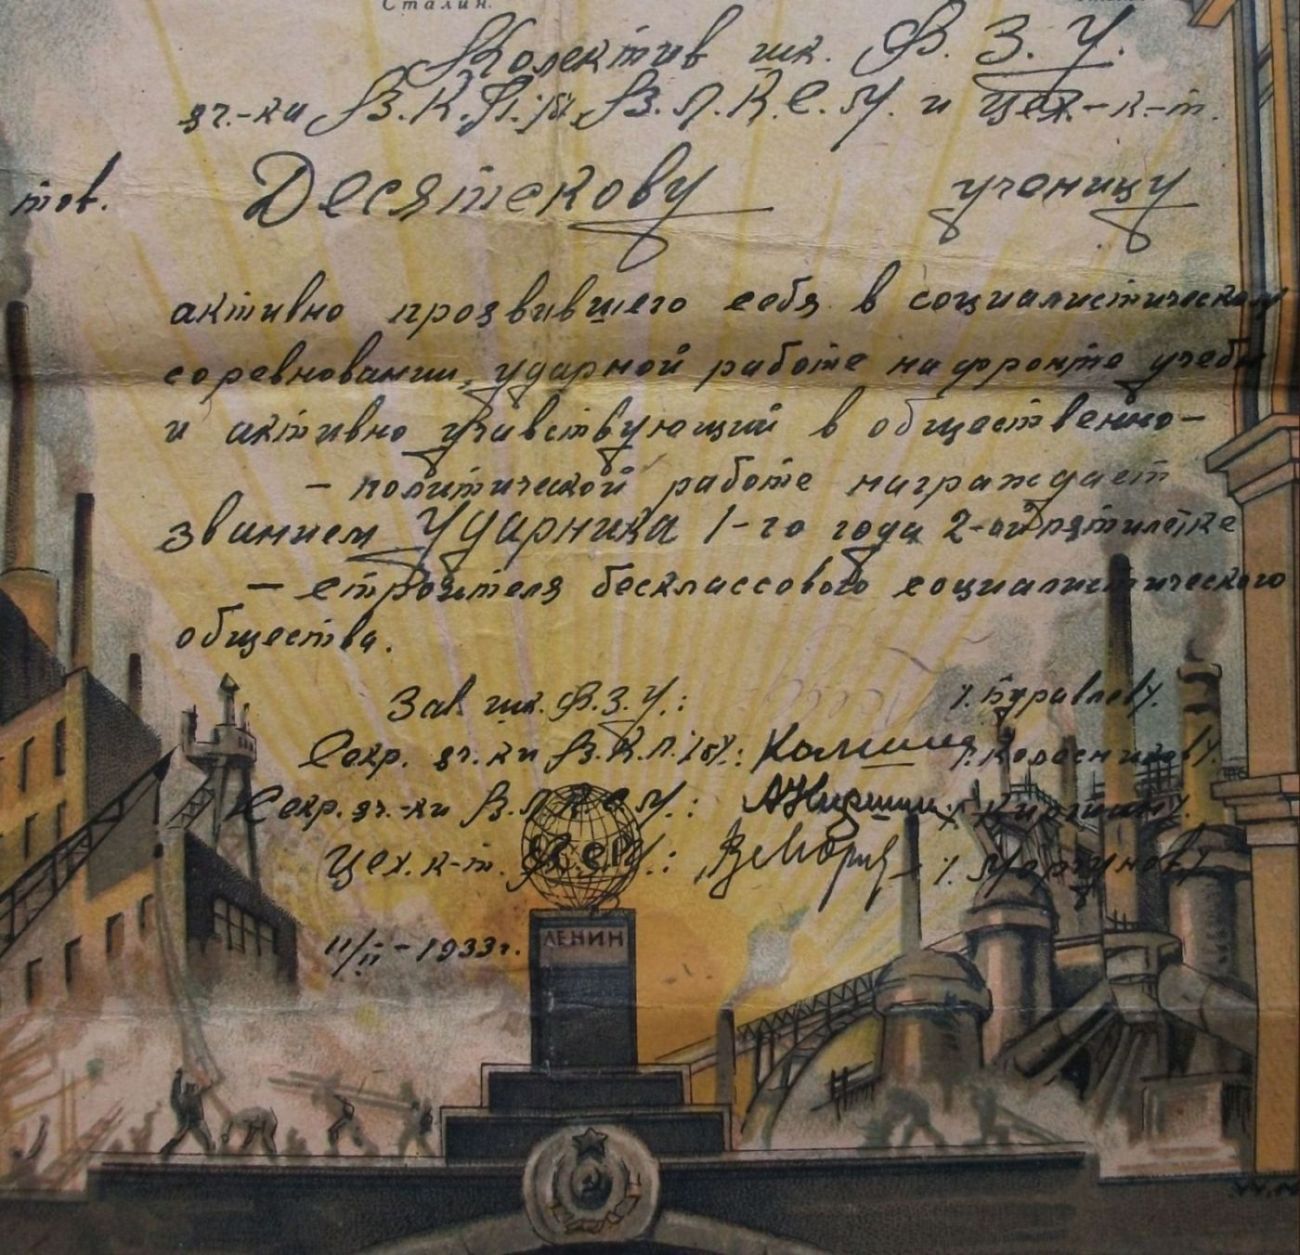 Сталин.
Колектив шк. Ф. З. У.
яч.-ки В.К.П./б/, В.Л.К.С.М. и цех.-к-т.
тов. Десятскову ученицу
активно проявившего себя в социалистическом
соревновании, ударной работе на фронте учебы
и активно учавствующий в общественно-
- политической работе награждает
званием Ударника 1-го года 2-ой пятилетке
- строителя бесклассового социалистического
общества.
Зав. шк. Ф.З.У.: /. Журавлев/.
Секр. яч.-ки В.К.П./б/: /. Колесников/.
Секр. яч.-ки В.Л.К.С.М.: АКиршин /. Киршин/.
Цех. к-т. : /. Моргунов/
11/II - 1933 г.
ЛЕНИН